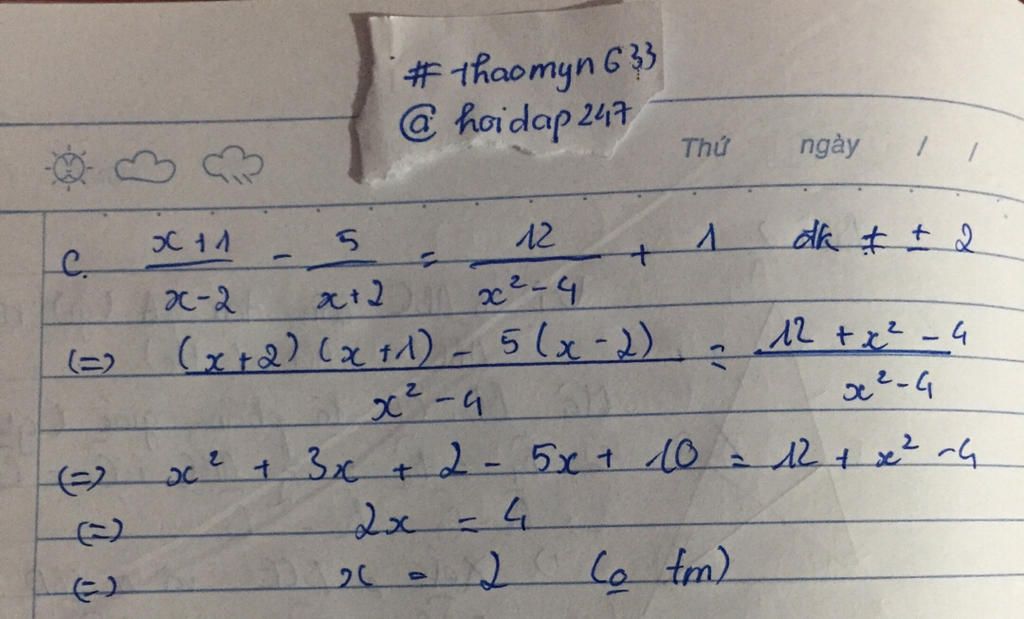 # thaomyn633
@ hoidap247
Thứ ngày / /
c. (x+1)/(x-2) - 5/(x+2) = 12/(x²-4) + 1 đk ≠ ± 2
(=) ((x+2)(x+1) - 5(x-2))/(x²-4) = (12 + x² - 4)/(x²-4)
(=) x² + 3x + 2 - 5x + 10 = 12 + x² - 4
(=) 2x = 4
(=) x = 2 (o tm)